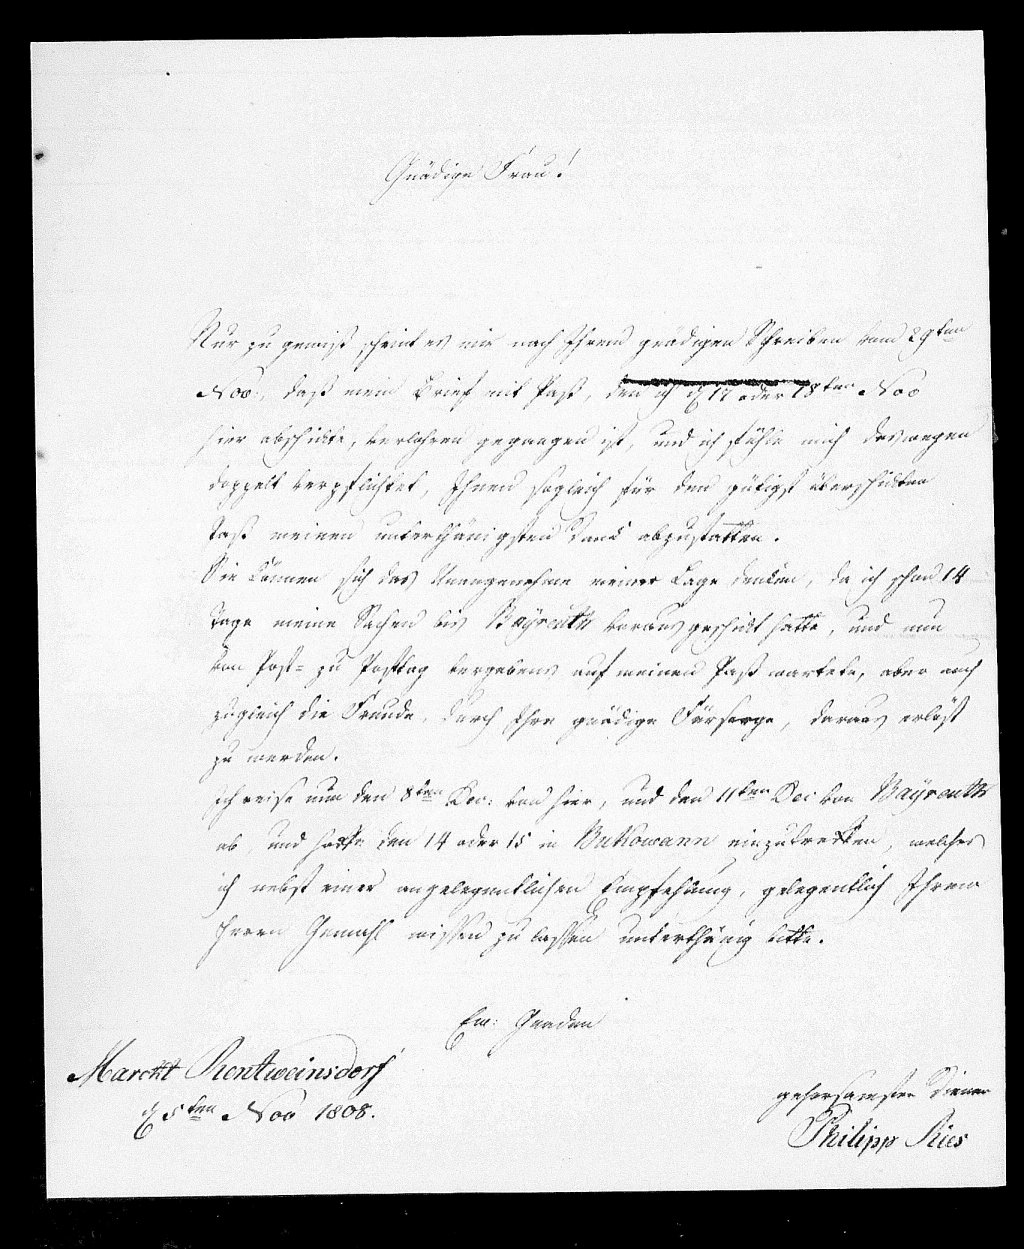 Gnädige Frau!
Nur zu gewiß scheint es mir nach Ihrem gnädigen Schreiben vom 29ten
Nov:, daß mein Brief mit Paß, den ich d 17 oder 18ten Nov
hier abschickte, verlohren gegangen ist, und ich fühle mich deswegen
doppelt verpflichtet, Ihnen sogleich für den gütigst überschickten
Paß meinen unterthänigsten Dank abzustatten.
Sie können sich das Unangenehme meiner Lage denken, da ich schon 14
Tage meine Sachen bis Bayreuth vorausgeschickt hatte, und nun
von Post= zu Posttag vergebens auf meinen Paß wartete, aber auch
zugleich die Freude, durch Ihre gnädige Fürsorge, daraus erlößt
zu werden.
Ich reise nun den 8ten Dec: von hier, und den 11ten Dec von Bayreuth
ab, und hoffe den 14 oder 15 in Bukowann einzutreffen, welches
ich nebst einer angelegentlichen Empfehlung, gelegentlich Ihrem
Herrn Gemahl wissen zu lassen unterthänig bitte.
Ew: Gnaden
Marckt Rentweinsdorf
d 5ten Nov 1808.
gehorsamster Diener
Philipp Ries